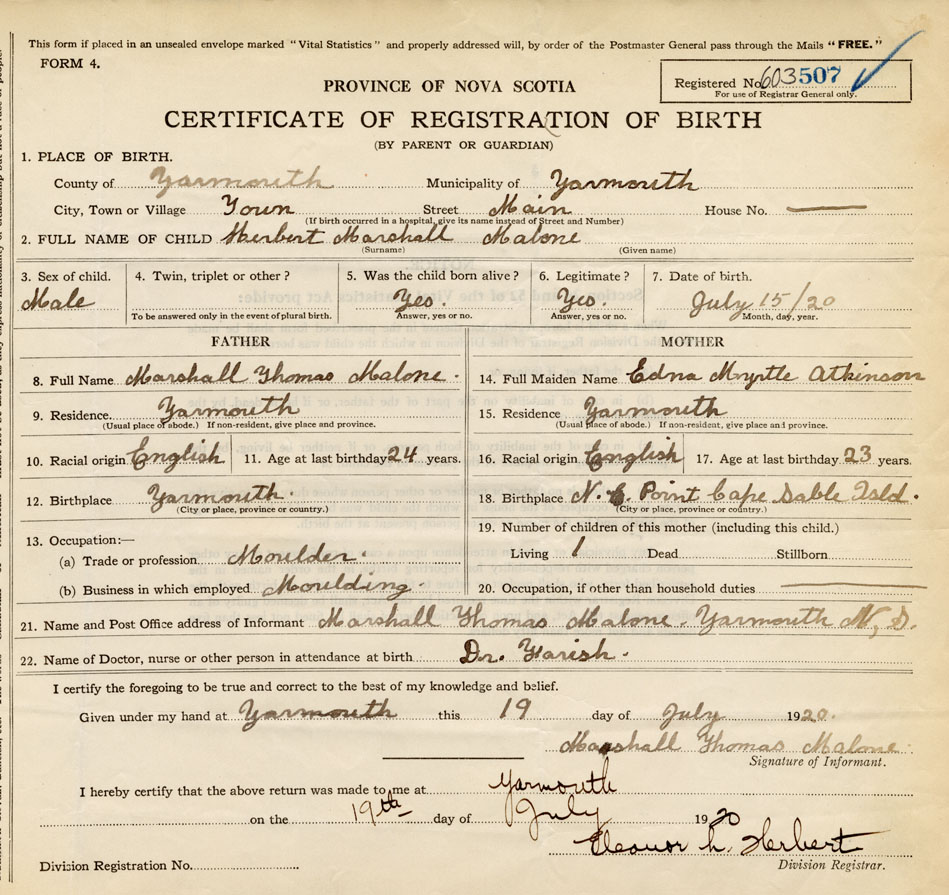 This form if placed in an unsealed envelope marked "Vital Statistics" and properly addressed will, by order of the Postmaster General pass through the Mails "FREE."
FORM 4.
Registered No. 603 507
For use of Registrar General only.
PROVINCE OF NOVA SCOTIA
CERTIFICATE OF REGISTRATION OF BIRTH
(BY PARENT OR GUARDIAN)
1. PLACE OF BIRTH.
County of Yarmouth Municipality of Yarmouth
City, Town or Village Town Street Main House No.
(If birth occurred in a hospital, give its name instead of Street and Number)
2. FULL NAME OF CHILD Herbert Marshall Malone
(Surname) (Given name)
3. Sex of child. 4. Twin, triplet or other? 5. Was the child born alive? 6. Legitimate? 7. Date of birth.
Male Yes. Yes. July 15/20
To be answered only in the event of plural birth. Answer, yes or no. Answer, yes or no. Month, day, year.
FATHER MOTHER
8. Full Name Marshall Thomas Malone. 14. Full Maiden Name Edna Myrtle Atkinson
9. Residence. Yarmouth 15. Residence Yarmouth
(Usual place of abode.) If non-resident, give place and province. (Usual place of abode.) If non-resident, give place and province.
10. Racial origin English 11. Age at last birthday 24 years. 16. Racial origin English 17. Age at last birthday 23 years.
12. Birthplace Yarmouth. 18. Birthplace N. E. Point Cape Sable Isld.
(City or place, province or country.) (City or place, province or country.)
19. Number of children of this mother (including this child.)
13. Occupation:—
(a) Trade or profession Moulder. Living 1 Dead Stillborn
(b) Business in which employed Moulding. 20. Occupation, if other than household duties
21. Name and Post Office address of Informant Marshall Thomas Malone. Yarmouth N, S.
22. Name of Doctor, nurse or other person in attendance at birth Dr. Farish.
I certify the foregoing to be true and correct to the best of my knowledge and belief.
Given under my hand at Yarmouth this 19 day of July 1920.
Marshall Thomas Malone.
Signature of Informant.
I hereby certify that the above return was made to me at Yarmouth
on the 19th day of July 1920
Eleanor L. Herbert
Division Registration No. Division Registrar.